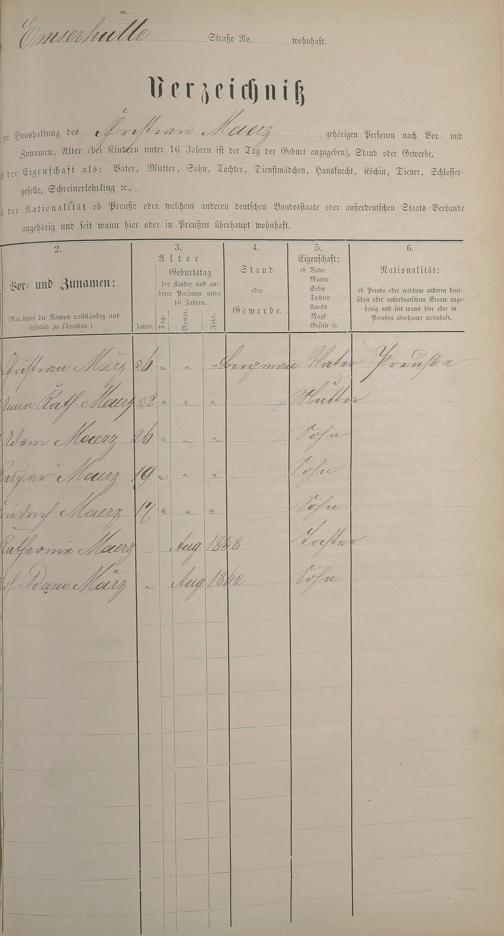 Emserhütte Straße No. wohnhaft.
Verzeichniß
Haushaltung des Christian Maerz gehörigen Personen nach Vor- und
Zunamen, Alter (bei Kindern unter 16 Jahren ist der Tag der Geburt anzugeben), Stand oder Gewerbe,
der Eigenschaft als: Vater, Mutter, Sohn, Tochter, Dienstmädchen, Hausknecht, Köchin, Diener, Schlosser-
geselle, Schreinerlehrling ꝛc.,
der Nationalität ob Preuße oder welchem anderen deutschen Bundesstaate oder außerdeutschen Staats-Verbande
angehörig und seit wann hier oder in Preußen überhaupt wohnhaft.
2. 3. 4. 5. 6.
Vor- und Zunamen:
(Man bittet die Namen vollständig und
leserlich zu schreiben.)
Alter
Geburtstag
der Kinder und an-
derer Personen unter
16 Jahren.
Jahre. Tag. Monat. Jahr.
Stand
oder
Gewerbe.
Eigenschaft:
ob Vater
Mutter
Sohn
Tochter
Knecht
Magd
Geselle ꝛc.
Nationalität:
ob Preuße oder welchem anderen deut-
schen oder außerdeutschen Staate ange-
hörig und seit wann hier oder in
Preußen überhaupt wohnhaft.
Christian März 56 " " " Bergman Vater Preuße
Anna Kath Maerz 52 " " " Mutter
Adam Maerz 26 " " " Sohn
Kaspar Maerz 19 " " " Sohn
Friedrich Maerz 17 " " " Sohn
Katharina Maerz Aug 1858 Tochter
Adam März " Aug 1860 Sohn